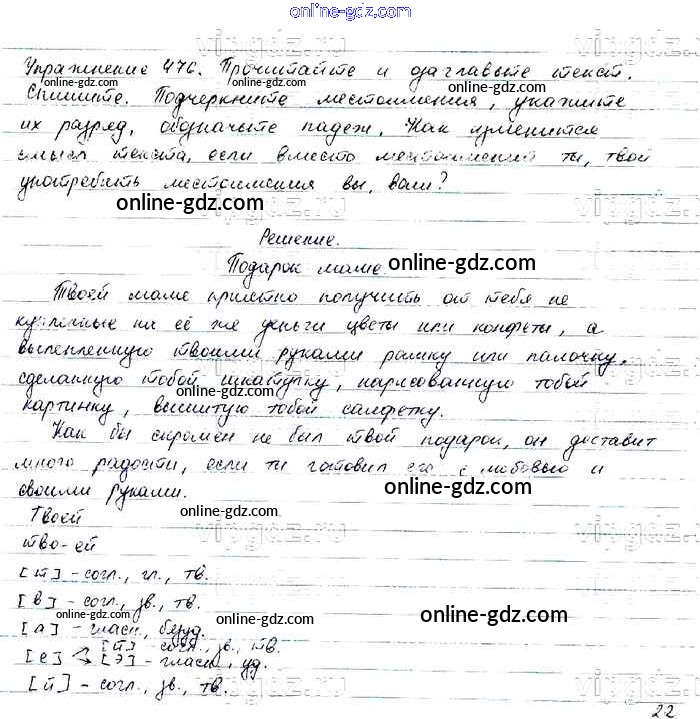 online-gdz.com
Упражнение 476. Прочитайте и озаглавьте текст.
Спишите. Подчеркните местоимения, укажите
их разряд, обозначьте падеж. Как изменится
смысл текста, если вместо местоимений ты, твой
употребить местоимения вы, ваш?
online-gdz.com
Решение.
Подарок маме
online-gdz.com
Твоей маме приятно получить от тебя не
купленные на её же деньги цветы или конфеты, а
вылепленную твоими руками рамку или палочку,
сделанную тобой шкатулку, нарисованную тобой
картинку, вышитую тобой салфетку.
Как бы скромен не был твой подарок, он доставит
много радости, если ты готовил его с любовью и
своими руками.
online-gdz.com
Твоей
тво-ей
[т] - согл., гл., тв.
[в] - согл., зв., тв.
[а] - гласн., безуд.
[е] [й] - согл., зв., тв.
[э] - гласн., уд.
[й] - согл., зв., тв.
online-gdz.com
22